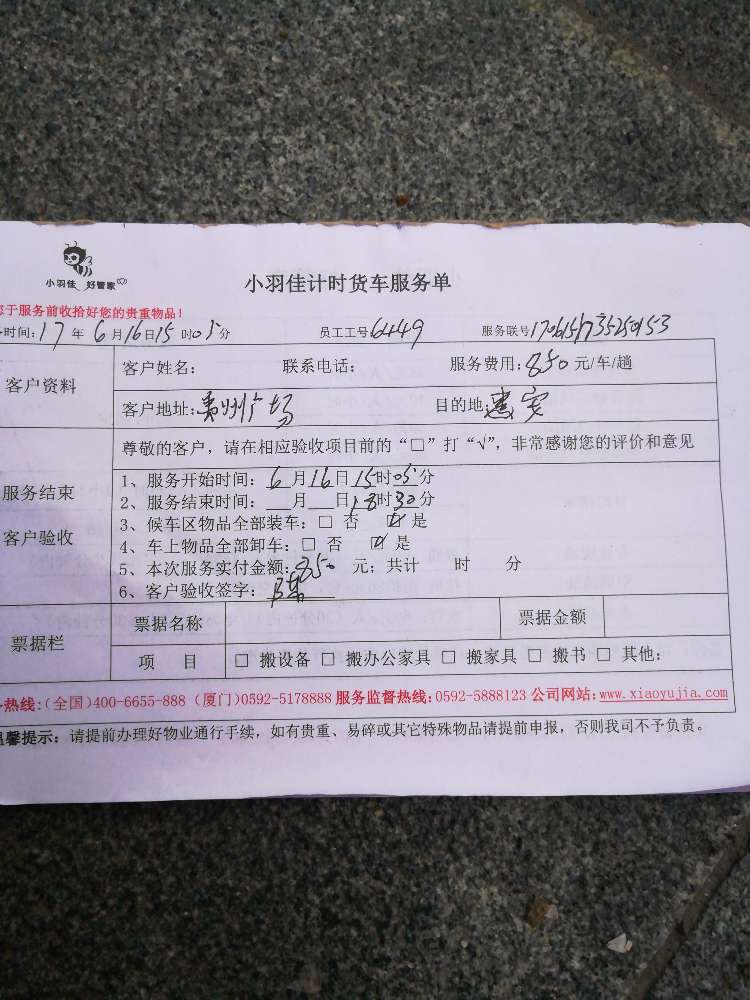 小羽佳 好管家
小羽佳计时货车服务单
于服务前收拾好您的贵重物品！
时间：17年6月16日15时05分 员工工号6449 服务联号1706151735250153
客户资料
客户姓名： 联系电话： 服务费用：850元/车/趟
客户地址：州广场 目的地：惠安
尊敬的客户，请在相应验收项目前的“□”打“√”，非常感谢您的评价和意见
服务结束
客户验收
1、服务开始时间：6月16日15时05分
2、服务结束时间：__月__日18时30分
3、候车区物品全部装车：□ 否 ☑ 是
4、车上物品全部卸车：□ 否 ☑ 是
5、本次服务实付金额：850元；共计 时 分
6、客户验收签字：
票据栏
票据名称 票据金额
项 目 □ 搬设备 □ 搬办公家具 □ 搬家具 □ 搬书 □ 其他：
热线：(全国)400-6655-888 (厦门)0592-5178888 服务监督热线：0592-5888123 公司网站：www.xiaoyujia.com
馨提示：请提前办理好物业通行手续，如有贵重、易碎或其它特殊物品请提前申报，否则我司不予负责。